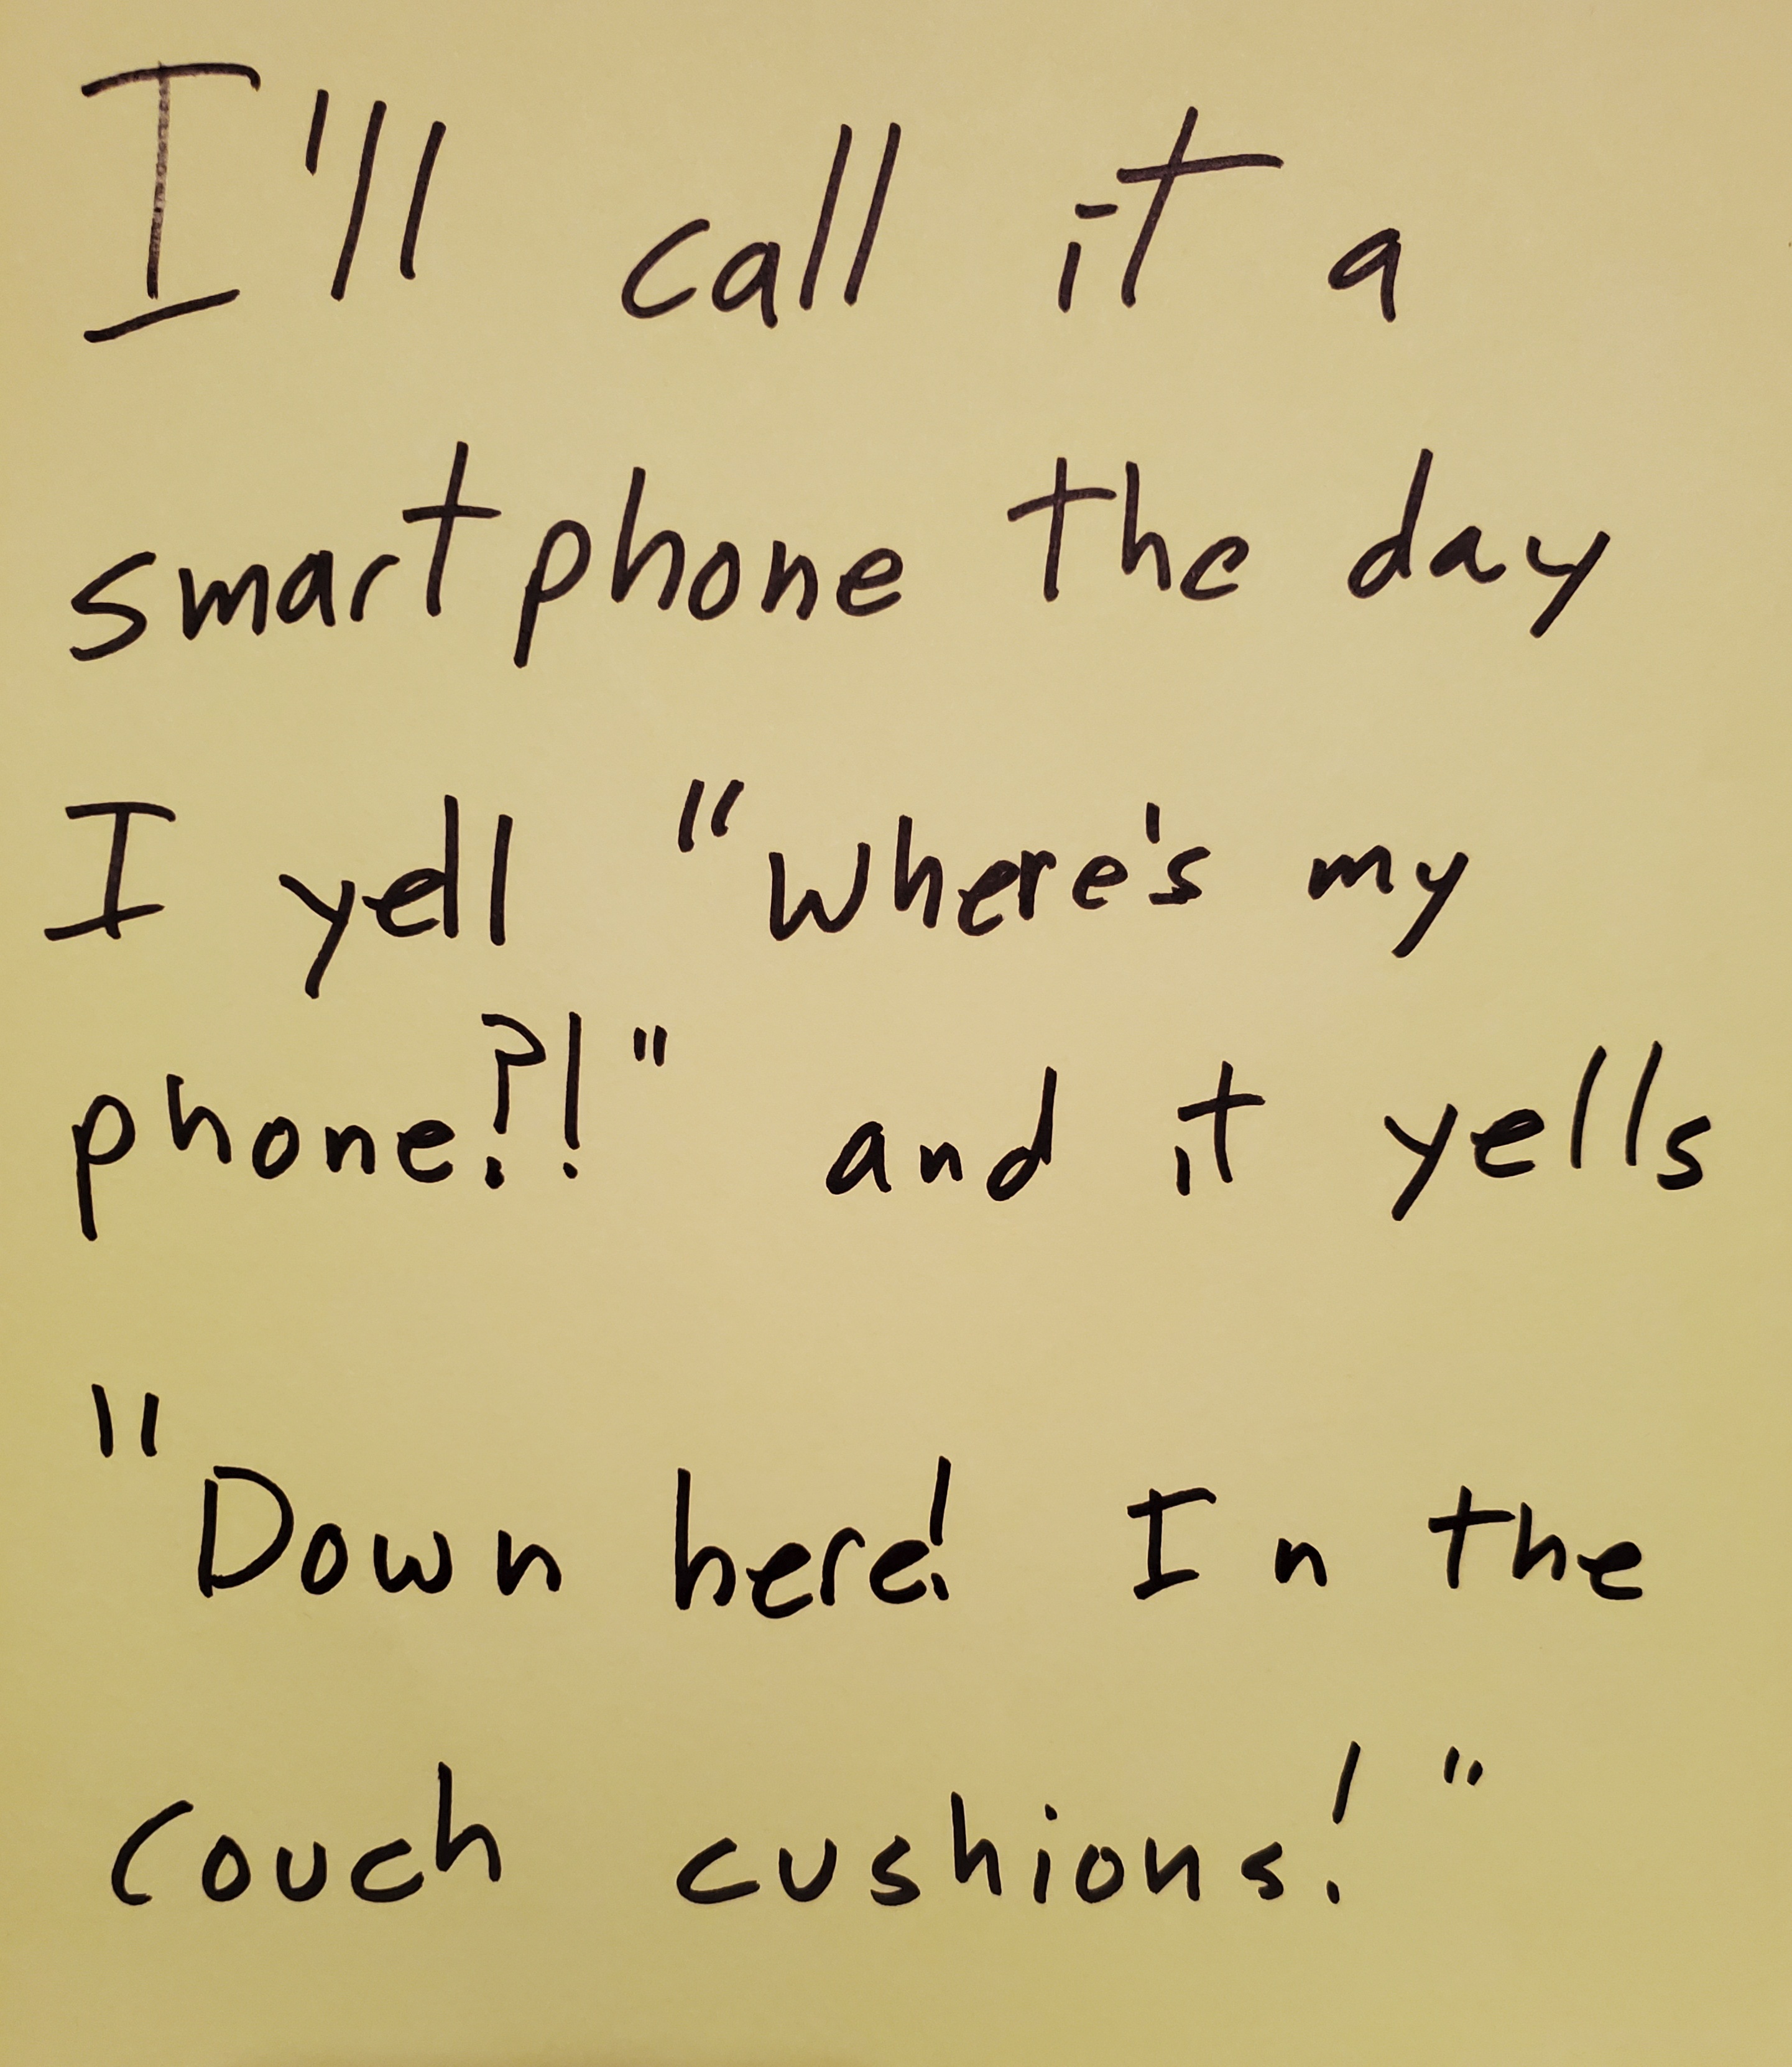 I'll call it a
smartphone the day
I yell "Where's my
phone?!" and it yells
"Down here! In the
couch cushions!"